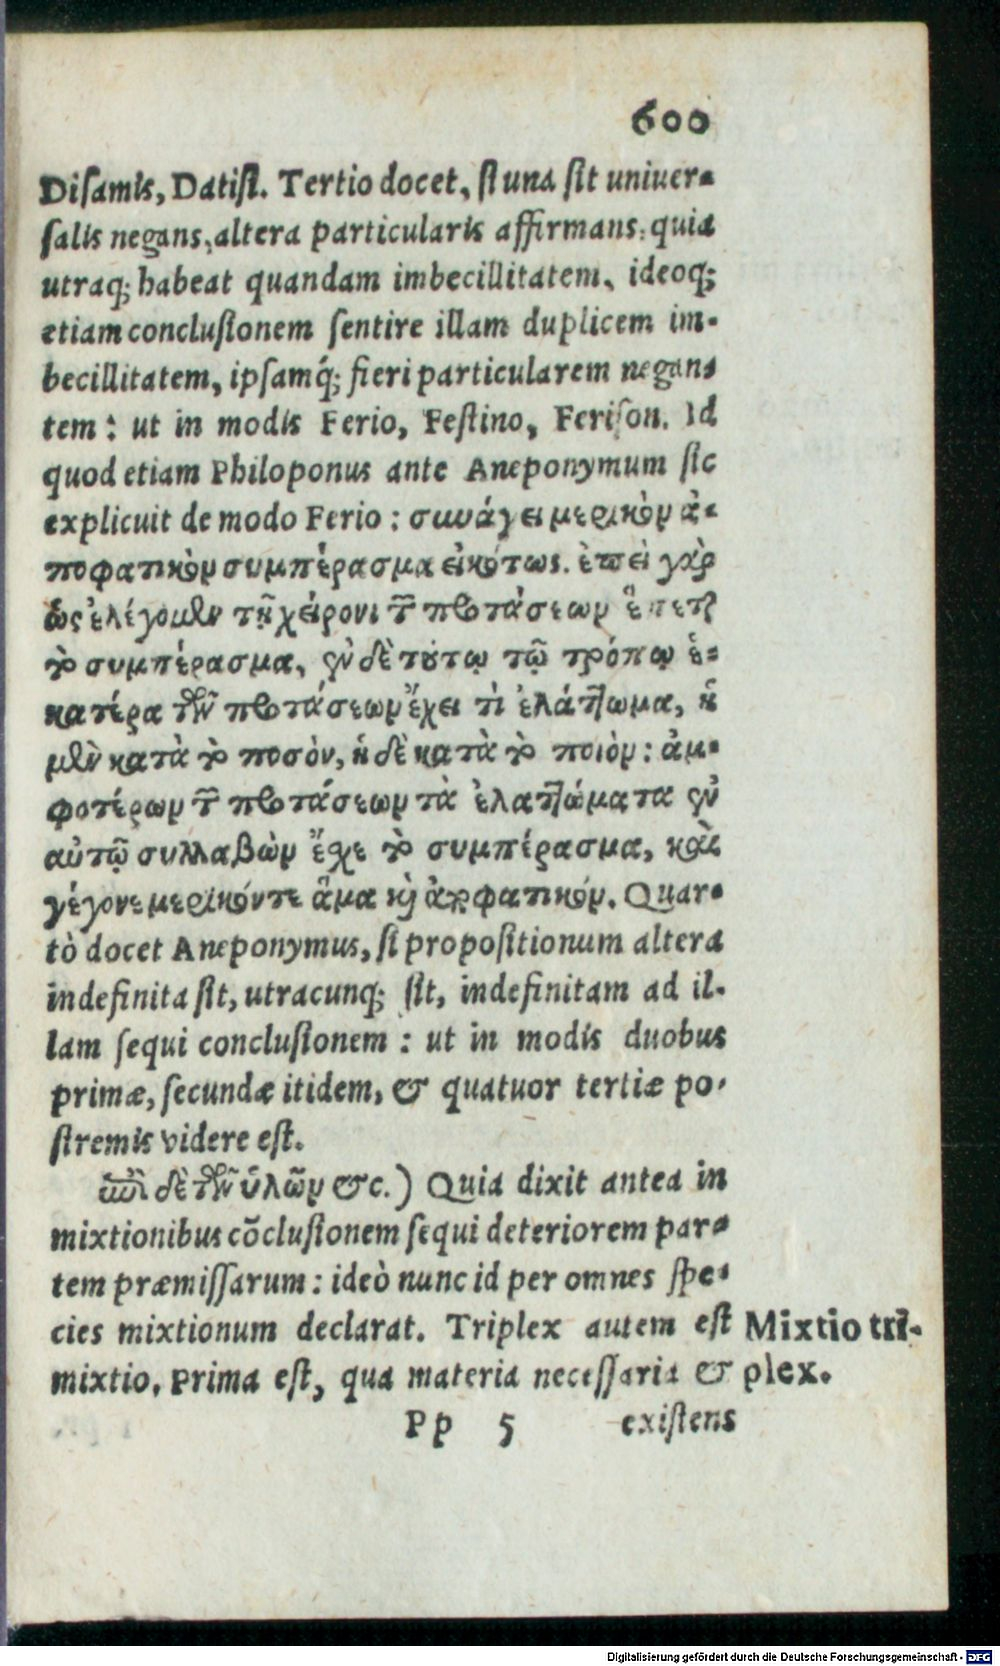 600
Diſamis, Datiſi. Tertio docet, ſi una ſit univer-
ſalis negans, altera particularis affirmans: quia
utraq; habeat quandam imbecillitatem, ideoq;
etiam concluſionem ſentire illam duplicem im-
becillitatem, ipſamq́; fieri particularem negan-
tem: ut in modis Ferio, Feſtino, Feriſon. Id
quod etiam Philoponus ante Aneponymum ſic
explicuit de modo Ferio: συνάγει μερικὸν ἀ-
ποφατικὸν συμπέρασμα εἰκότως. ἐπεὶ γὰρ
ὡς ἐλέγομεν τῇ χείρονι τῶν προτάσεων ἕπεται
τὸ συμπέρασμα, ἐν δὲ τούτῳ τῷ τρόπῳ ἑ-
κατέρα τῶν προτάσεων ἔχει τὶ ἐλάττωμα, ἡ
μὲν κατὰ τὸ ποσὸν, ἡ δὲ κατὰ τὸ ποιόν: ἀμ-
φοτέρων τῶν προτάσεων τὰ ἐλαττώματα ἐν
αὐτῷ συλλαβὼν ἔχε τὸ συμπέρασμα, καὶ
γέγονε μερικόντε ἅμα καὶ ἀποφατικόν. Quar-
tò docet Aneponymus, ſi propoſitionum altera
indefinita ſit, utracunq; ſit, indefinitam ad il-
lam ſequi concluſionem: ut in modis duobus
primæ, ſecundæ itidem, & quatuor tertiæ po-
ſtremis videre eſt.
ἐπὶ δὲ τῶν ὑλῶν &c.) Quia dixit antea in
mixtionibus cõcluſionem ſequi deteriorem par-
tem præmiſſarum: ideò nunc id per omnes ſpe-
cies mixtionum declarat. Triplex autem eſt
mixtio. Prima eſt, qua materia neceſſaria &
Mixtio tri-
plex.
Pp 5 exiſtens
Digitalisierung gefördert durch die Deutsche Forschungsgemeinschaft - DFG